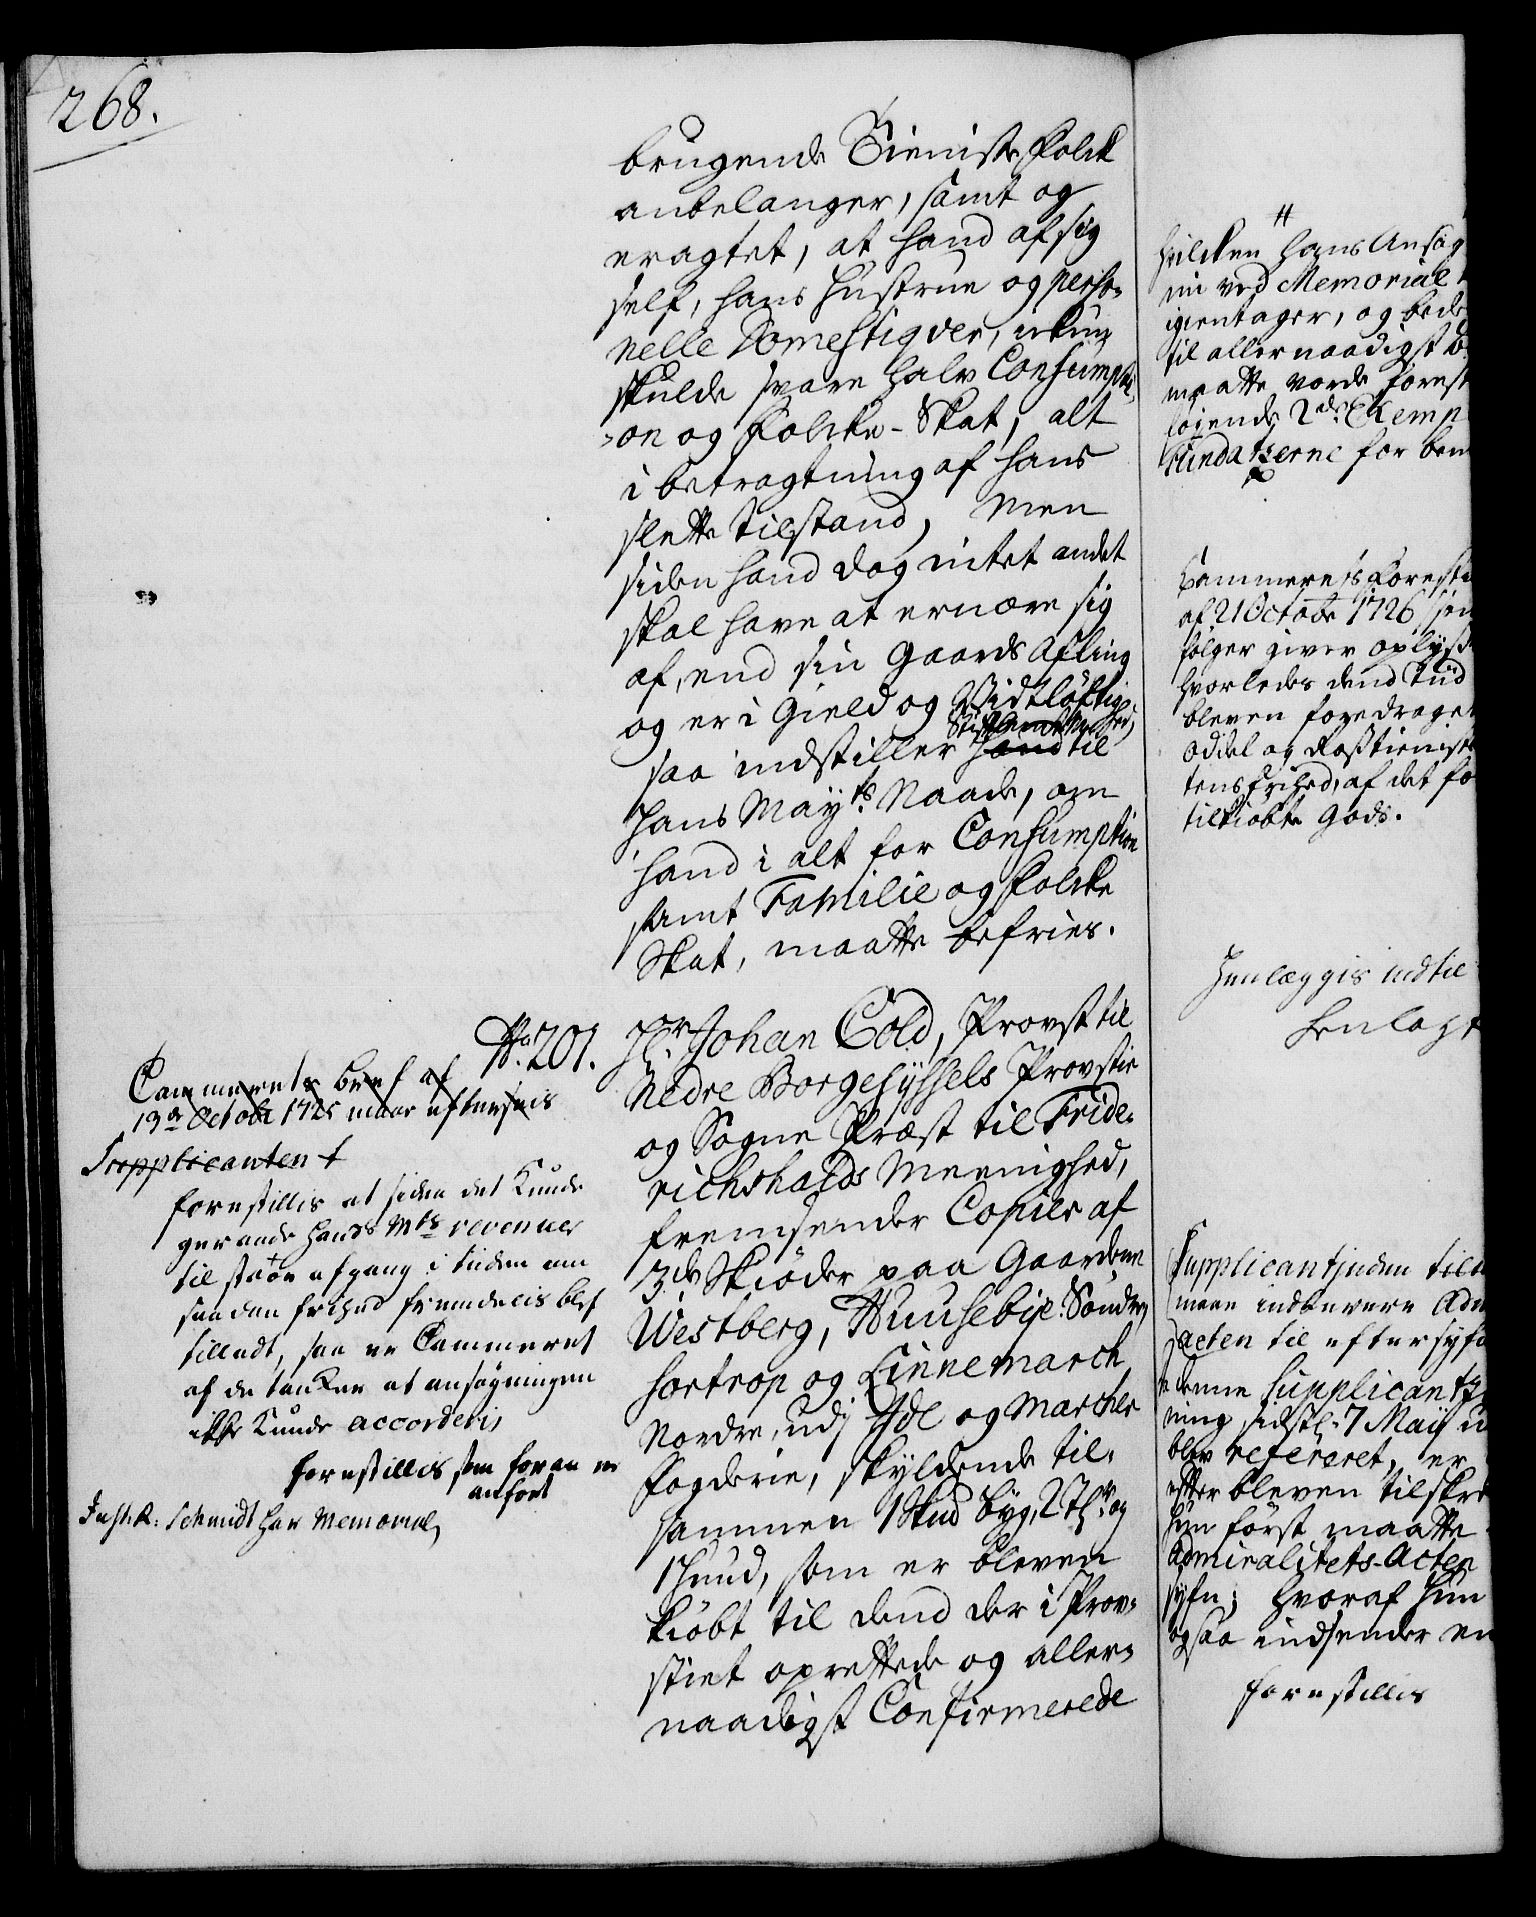 268.
brugende Tieniste Folck
anbelanger, samt og
eragtet, at hand af sig
self, hans Hustrue og perso-
nelle Domestiqver, ickun
skulde svare halv Consumpti-
-on og Folcke-Skat, alt
i betragtning af hans
slette tilstand, men
siden hand dog intet andet
skal have at ernære sig
af, end sin Gaards Afling
og er i Gield og Vidtløftig-
hed,
saa indstiller hand til
Hans Mayts Naade, om
hand i alt for Consumption
samt Familie og Folcke
Skat, maatte befries.
No. 201.
Hr. Johan Cold, Provst til
Nedre Borgesyssels Provstie
og Sogne Præst til Fride-
richshalds Meenighed,
fremsender Copier af
3de Skiøder paa Gaardene
Westberg, Huusebye Søndre,
Hortrop og Linnemarch
Nordre, udj Ide og Marcher
Fogderie, skyldende til-
sammen 1 Skud byg, 2 Tlr og
1 Huud, som er bleven
kiøbt til dend der i Prov-
stiet oprettede og aller-
naadigst Confirmerede
Cammerets bref af
19de Octobr 1725 maae eftersees
Supplicanten
forestillis at siden det kunde
geraade Hands Mts revenuer
til stoor afgang i tiden om
saadan frihed fremdelis blef
tilladt, saa er Cammeret
af de tanker at ansøgningen
ikke kunde accorderis
forestillis som foran er
anført
Just. R: Schmidt har Memorial,
#
hvilcken hans Ansøg
nu ved Memorial
igientager, og bede
til allernaadigst
maatte vorde forest
2de Exemp
for
Cammerets Foresti
af 21 Octobr 1726, som
følger giver oplysn
hvorledes dend Tid
bleven foredraget
oddel og Rosstienist
tens frihed, af det fo
tilkiøbte Gods.
Henlæggis indtil
henlagt
Supplicantinden til
maae indlevere Adm
acten til eftersyn
denne Supplicantz
ning sidstl. 7 Maij
blev refereret, er
efter bleven tilskre
hun først maatte
Admiralitets-Acten
syn; hvoraf hun
ogsaa indsender en
forestillis